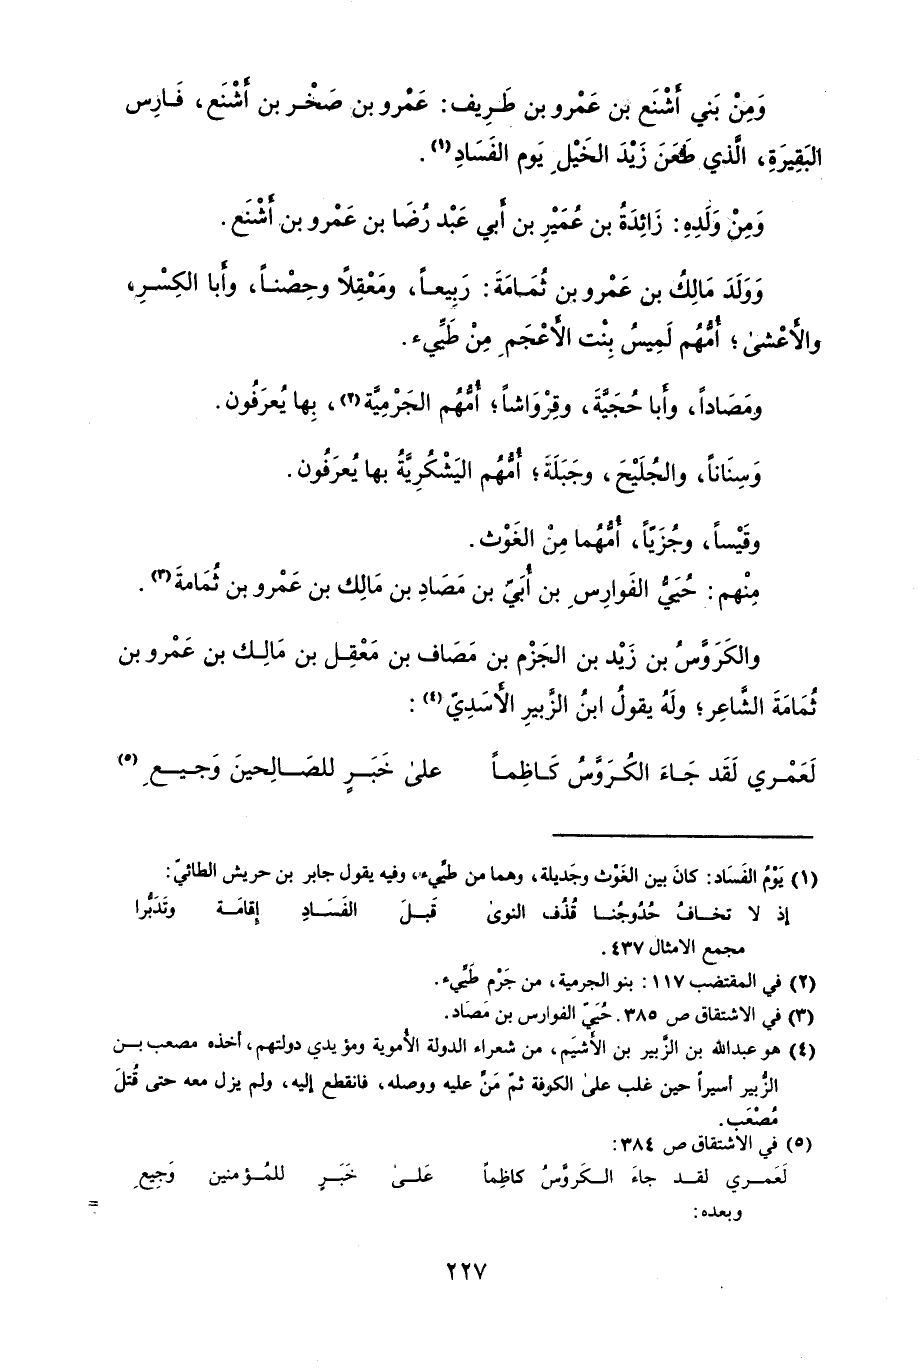 وَمِنْ بَني أَشْنَع بن عَمْرو بن طَريف: عَمْرو بن صَخْر بن أَشْنَع، فَارِس
البَقِيرَةِ، الَّذي طَعَنَ زَيْدَ الخَيْلِ يَوم الفَسَادِ(١).
وَمِنْ وَلَدِهِ: زَائِدَةُ بن عُمَيْرِ بن أَبي عَبْد رُضَا بن عَمْرو بن أَشْنَع.
وَوَلَدَ مَالِكُ بن عَمْرو بن ثُمَامَةَ: رَبِيعاً، ومَعْقِلًا وحِصْناً، وأَبا الكِسْرِ،
والأَعْشىٰ؛ أُمُّهُم لَمِيسُ بِنْت الأَعْجَمِ مِنْ طَيِّيء.
ومَصَاداً، وأَبا حُجَيَّةَ، وقِرْوَاشاً؛ أُمُّهُم الجَرْمِيَّة(٢)، بِها يُعرَفُون.
وَسِنَاناً، والجُلَيْحَ، وجَبَلَةَ؛ أُمُّهُم اليَشْكُرِيَّةُ بها يُعرَفُون.
وقَيْساً، وجُزَيّاً، أُمُّهُما مِنْ الغَوْث.
مِنْهم: حُيَيُّ الفَوارِسِ بن أُبَيّ بن مَصَادِ بن مَالِك بن عَمْرو بن ثُمَامَةَ(٣).
والكَرَوَّسُ بن زَيْد بن الجَزْم بن مَصَاف بن مَعْقِل بن مَالِك بن عَمْرو بن
ثُمَامَةَ الشَّاعِر؛ ولَهُ يقولُ ابنُ الزَّبيرِ الأَسَدِيّ(٤):
لَعَمْري لَقَد جَاءَ الكُرَوَّسُ كَاظِماً علىٰ خَبَرٍ للصَّالِحينَ وَجيعِ(٥)
(١) يَوْمُ الفَسَاد: كانَ بين الغَوْث وجَديلة، وهما من طيِّيء، وفيه يقول جابر بن حريش الطائيّ:
إذ لا تخافُ حُدُوجُنا قُذُف النوىٰ قَبلَ الفَسَادِ إقامَة وتَدَبُّرا
مجمع الامثال ٤٣٧.
(٢) في المقتضب ١١٧: بنو الجرمية، من جَرْم طَيِّيء.
(٣) في الاشتقاق ص ٣٨٥. حُيَيّ الفوارس بن مَصَاد.
(٤) هو عبدالله بن الزَّبير بن الأَشْيَم، من شعراء الدولة الأموية ومؤيدي دولتهم، أخذه مصعب بن
الزُّبير أسيراً حين غلب علىٰ الكوفة ثمّ مَنَّ عليه ووصله، فانقطع إليه، ولم يزل معه حتى قُتلَ
مُصْعَب.
(٥) في الاشتقاق ص ٣٨٤:
لَعَمري لقد جاءَ الكَروَّسُ كاظِماً عَلىٰ خَبَرٍ للمُؤمنين وَجِيعِ
وبعده:
=
٢٢٧